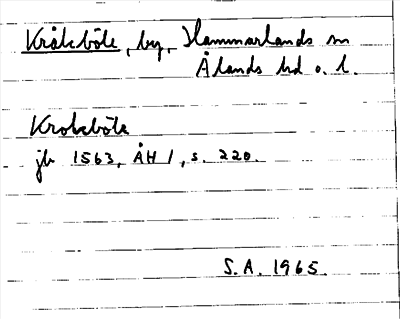 Kråkböle, by, Hammarlands sn
Ålands hd o. l.
Krokeböle
jb 1563, ÅH 1, s. 220.
S.A. 1965.